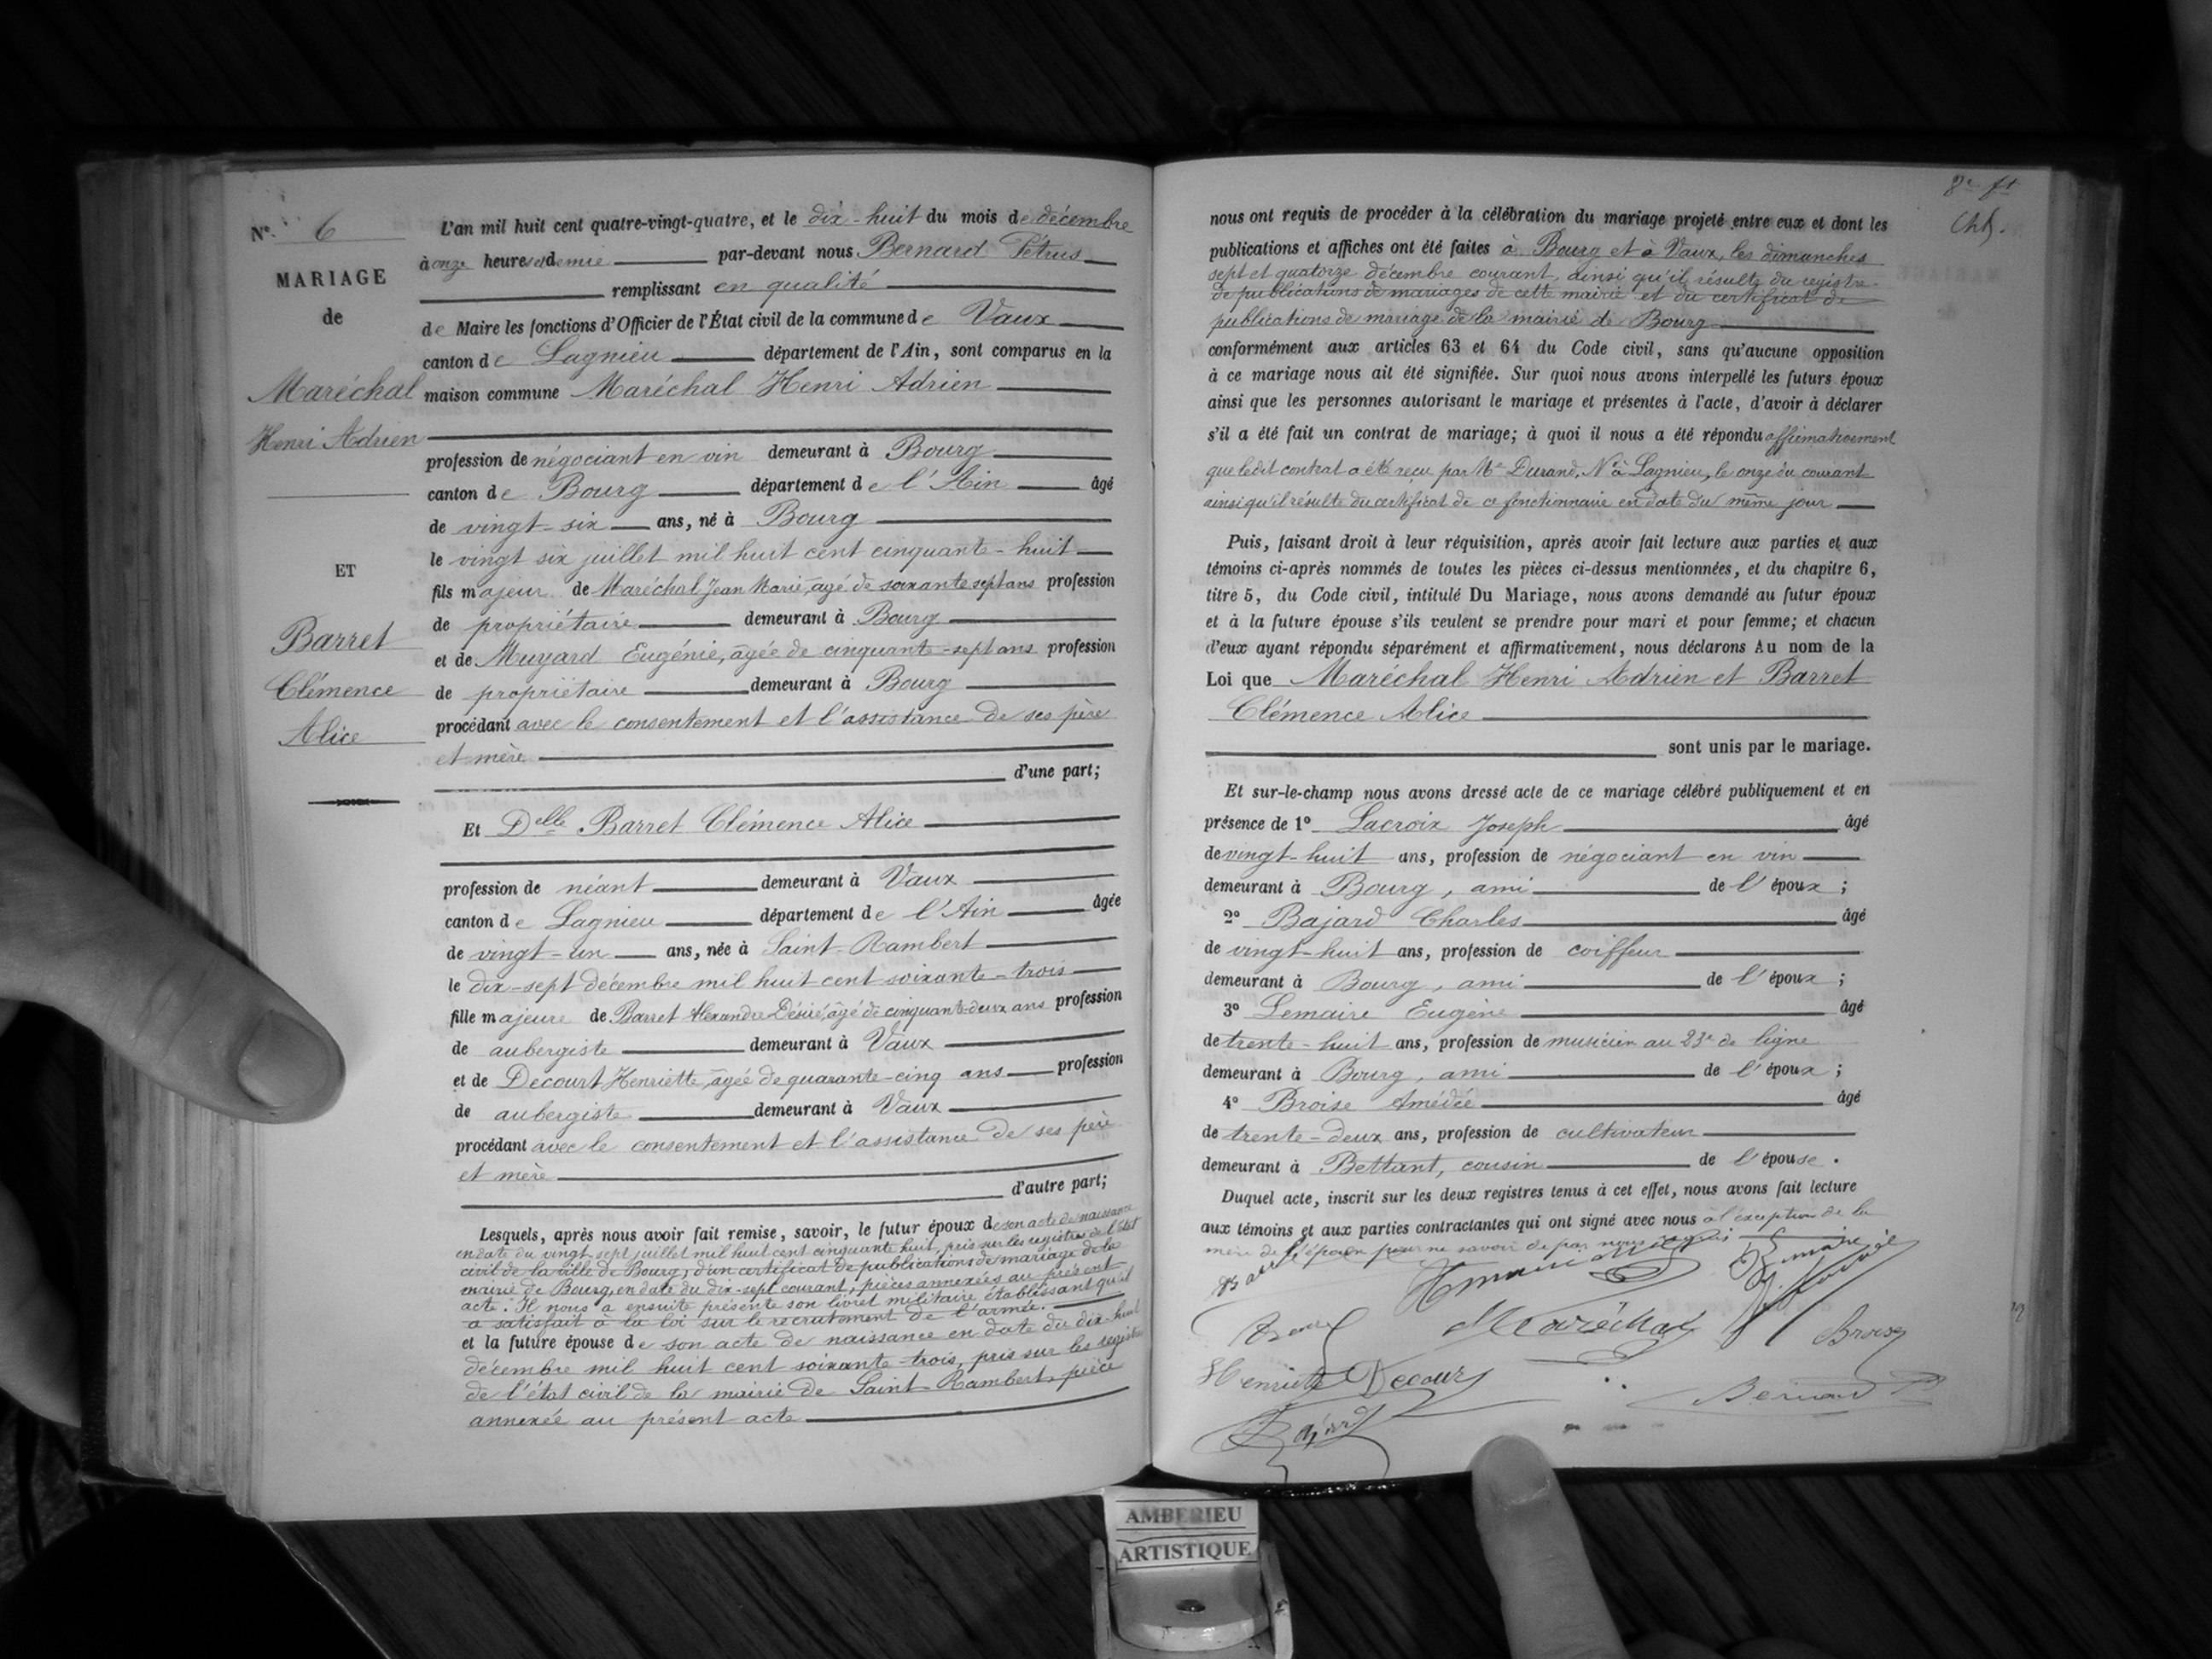 N° 6
MARIAGE
de
Maréchal
Henri Adrien
ET
Barret
Clémence
Alice
L'an mil huit cent quatre-vingt-quatre, et le dix-huit du mois de décembre
à onze heures et demie par-devant nous Bernard Pétrus
remplissant en qualité
de Maire les fonctions d'Officier de l'État civil de la commune de Vaux
canton de Lagnieu département de l'Ain, sont comparus en la
maison commune Maréchal Henri Adrien
profession de négociant en vin demeurant à Bourg
canton de Bourg département de l'Ain âgé
de vingt-six ans, né à Bourg
le vingt six juillet mil huit cent cinquante-huit
fils majeur de Maréchal Jean Marie, âgé de soixante sept ans profession
de propriétaire demeurant à Bourg
et de Muyard Eugénie, âgée de cinquante-sept ans profession
de propriétaire demeurant à Bourg
procédant avec le consentement et l'assistance de ses père
et mère
d'une part;
Et Delle Barret Clémence Alice
profession de néant demeurant à Vaux
canton de Lagnieu département de l'Ain âgée
de vingt-un ans, née à Saint-Rambert
le dix-sept décembre mil huit cent soixante-trois
fille majeure de Barret Alexandre Désiré, âgé de cinquante-deux ans profession
de aubergiste demeurant à Vaux
et de Decourt Henriette, âgée de quarante-cinq ans profession
de aubergiste demeurant à Vaux
procédant avec le consentement et l'assistance de ses père
et mère
d'autre part;
Lesquels, après nous avoir fait remise, savoir, le futur époux de son acte de naissance
en date du vingt sept juillet mil huit cent cinquante huit, pris sur les registres de l'état
civil de la ville de Bourg, d'un certificat de publications de mariage de la
mairie de Bourg, en date du dix-sept courant, pièces annexées au présent
acte. Il nous a ensuite présenté son livret militaire établissant qu'il
a satisfait à la loi sur le recrutement de l'armée.
et la future épouse de son acte de naissance en date du dix-huit
décembre mil huit cent soixante-trois, pris sur les registres
de l'état civil de la mairie de Saint-Rambert, pièce
annexée au présent acte
nous ont requis de procéder à la célébration du mariage projeté entre eux et dont les
publications et affiches ont été faites à Bourg et à Vaux, les dimanches
sept et quatorze décembre courant, ainsi qu'il résulte du registre
de publications de mariages de cette mairie et du certificat de
publications de mariage de la mairie de Bourg
conformément aux articles 63 et 64 du Code civil, sans qu'aucune opposition
à ce mariage nous ait été signifiée. Sur quoi nous avons interpellé les futurs époux
ainsi que les personnes autorisant le mariage et présentes à l'acte, d'avoir à déclarer
s'il a été fait un contrat de mariage; à quoi il nous a été répondu affirmativement
que ledit contrat a été reçu par Me Durand, Nre à Lagnieu, le onze du courant
ainsi qu'il résulte du certificat de ce fonctionnaire en date du même jour
Puis, faisant droit à leur réquisition, après avoir fait lecture aux parties et aux
témoins ci-après nommés de toutes les pièces ci-dessus mentionnées, et du chapitre 6,
titre 5, du Code civil, intitulé Du Mariage, nous avons demandé au futur époux
et à la future épouse s'ils veulent se prendre pour mari et pour femme; et chacun
d'eux ayant répondu séparément et affirmativement, nous déclarons Au nom de la
Loi que Maréchal Henri Adrien et Barret
Clémence Alice
sont unis par le mariage.
Et sur-le-champ nous avons dressé acte de ce mariage célébré publiquement et en
présence de 1° Lacroix Joseph âgé
de vingt-huit ans, profession de négociant en vin
demeurant à Bourg, ami de l'époux;
2° Bajard Charles âgé
de vingt-huit ans, profession de coiffeur
demeurant à Bourg, ami de l'époux;
3° Lemaire Eugène âgé
de trente-huit ans, profession de musicien au 23e de ligne
demeurant à Bourg, ami de l'époux;
4° Broise Amédée âgé
de trente-deux ans, profession de cultivateur
demeurant à Bettant, cousin de l'épouse.
Duquel acte, inscrit sur les deux registres tenus à cet effet, nous avons fait lecture
aux témoins et aux parties contractantes qui ont signé avec nous à l'exception de la
mère de l'époux pour ne savoir de par nous requis
Lemaire
Maréchal
Broise
Henriette Decourt
Bernard P
Bajard
AMBERIEU
ARTISTIQUE